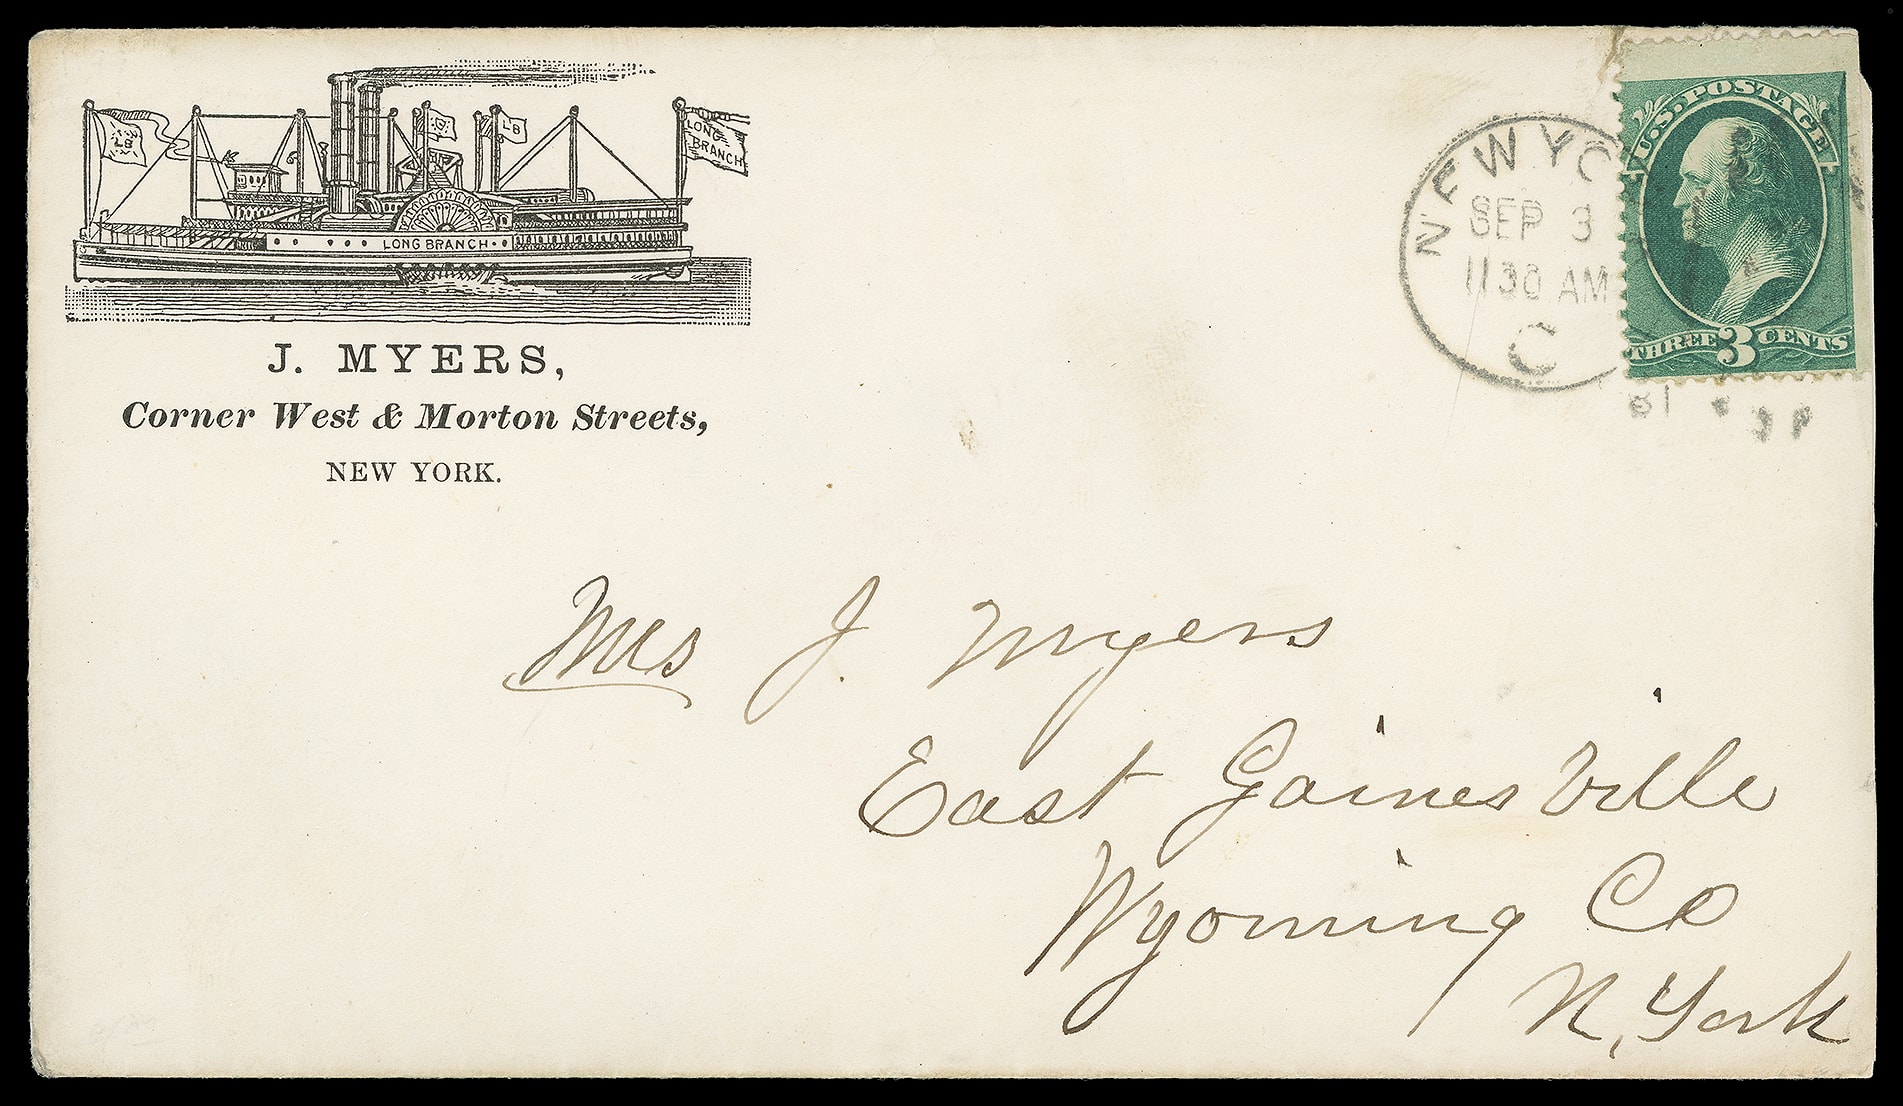 LB
LB
LONG
BRANCH
LONG BRANCH
J. MYERS,
Corner West & Morton Streets,
NEW YORK.
NEW YO
SEP 3
1130 AM
C
81
U.S. POSTAGE
THREE 3 CENTS
Mrs J. Myers
East Gainesville
Wyoming Co
N, York